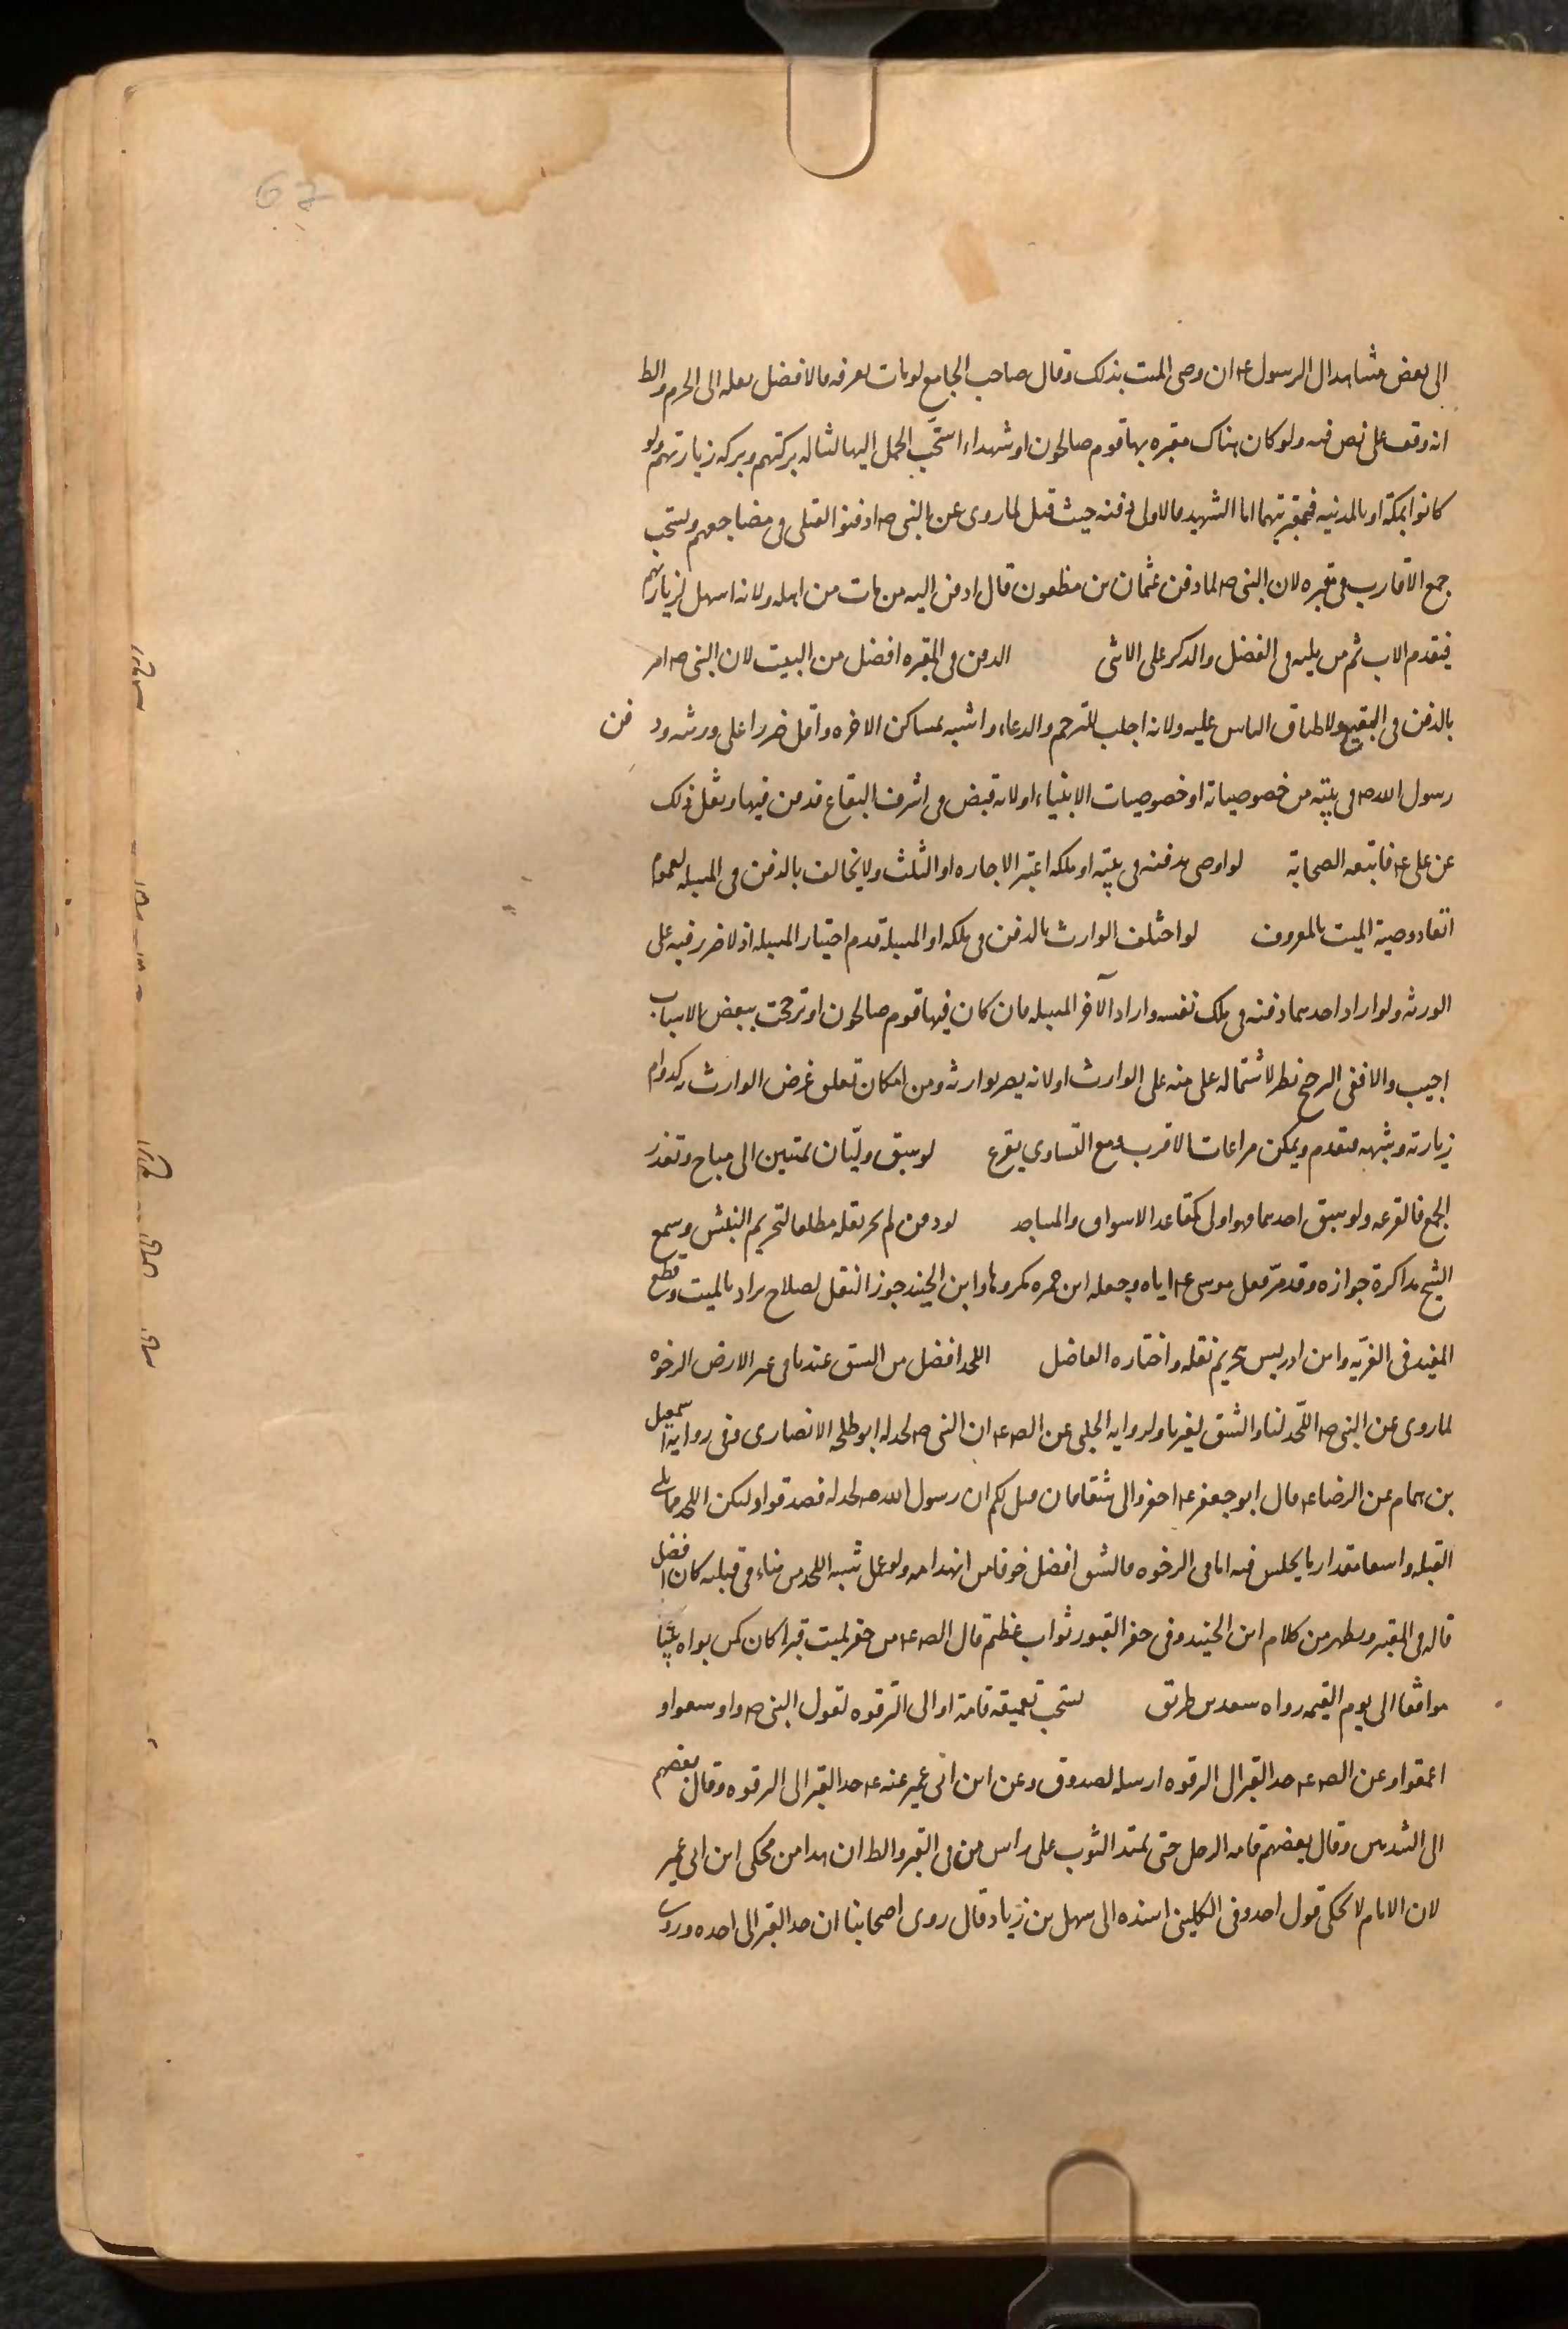 الى بعض مشاهد ال الرسول ع ان وصى الميت بذلك وقال صاحب الجامع لو مات بعرفه فالافضل نقله الى الحرم والظ
انه وقف على نص فيه ولو كان هناك مقبره بها قوم صالحون او شهداء استحب الحمل اليها لتناله بركتهم وبركه زيارتهم ولو
كانوا بمكة او بالمدينه فبمقبرتيهما اما الشهيد فالاولى دفنه حيث قتل لما روى عن النبى ص ادفنوا القتلى فى مضاجعهم ويستحب
جمع الاقارب فى مقبره لان النبى ص لما دفن عثمان بن مظعون قال ادفن اليه من مات من اهله ولانه اسهل لزيارتهم
فيقدم الاب ثم من يليه فى الفضل والذكر على الانثى الدفن فى المقبره افضل من البيت لان النبى ص امر
بالدفن فى البقيع ولاطباق الناس عليه ولانه اجلب للترحم والدعاء واشبه بمساكن الاخره واقل ضررا على ورثته ودفن
رسول الله ص فى بيته من خصوصياته او خصوصيات الانبياء او لانه قبض فى اشرف البقاع فدفن فيها ونقل ذلك
عن على ع فاتبعه الصحابة لو اوصى بدفنه فى بيته او ملكه اعتبر الاجازه او الثلث ولا يخالف بالدفن فى المسبله لعموم
انفاذ وصية الميت بالمعروف لو اختلف الوارث بالدفن فى ملكه او المسبلة قدم اختيار المسبله اذ لا ضرر فيه على
الورثه ولو اراد احدهما دفنه فى ملك نفسه واراد الآخر المسبله فان كان فيها قوم صالحون او ترجحت ببعض الاسباب
اجيب والا ففى الترجيح نظر لاشتماله على منه على الوارث او لانه يصير لوارثه ومن امكان تعلق غرض الوارث كدوام
زيارته وشبهه فتقدم ويمكن مراعات الاقرب ومع التساوى يقرع لو سبق وليان بميتين الى مباح وتعذر
الجمع فالقرعه ولو سبق احدهما فهو اولى كمقاعد الاسواق والمساجد لو دفن لم يجز نقله مطلقا لتحريم النبش وسمع
الشيخ مذاكرة جوازه وقد مر فعل موسى ع اياه وجعله ابن حمزه مكروها وابن الجنيد جوز النقل لصلاح يراد بالميت وقطع
المفيد فى الغريه وابن ادريس بتحريم نقله واختاره الفاضل اللحد افضل من الشق عندنا فى غير الارض الرخوه
لما روى عن النبى ص اللحد لنا والشق لغيرنا ولروايه الحلبى عن الص ع ان النبى ص لحد له ابو طلحه الانصارى وفى رواية اسمعيل
بن همام عن الرضا ع قال ابو جعفر ع احفروا لى شقا فان قيل لكم ان رسول الله ص لحد له فصدقوا وليكن اللحد مما يلى
القبله واسعا مقدار ما يجلس فيه اما فى الرخوه فالشق افضل خوفا من انهدامه ولو عمل شبه اللحد من بناء فى قبلته كان افضل
قاله فى المعتبر ويظهر من كلام ابن الجنيد وفى حفر القبور ثواب عظيم قال الص ع من حفر لميت قبرا كان كمن بواه بيتا
موافقا الى يوم القيمه رواه سعد بن طريف يستحب تعميقه قامة او الى الترقوه لقول النبى ص واوسعوا و
اعمقوا وعن الص ع حد القبر الى الترقوه ارسله الصدوق وعن ابن ابى عمير عنه ع حد القبر الى الترقوه وقال بعضهم
الى الثديين وقال بعضهم قامه الرجل حتى يمتد الثوب على راس من فى القبر والظ ان هذا من محكى ابن ابى عمير
لان الامام لا يحكى قول احد وفى الكلينى اسنده الى سهل بن زياد قال روى اصحابنا ان حد القبر الى اخره وروى